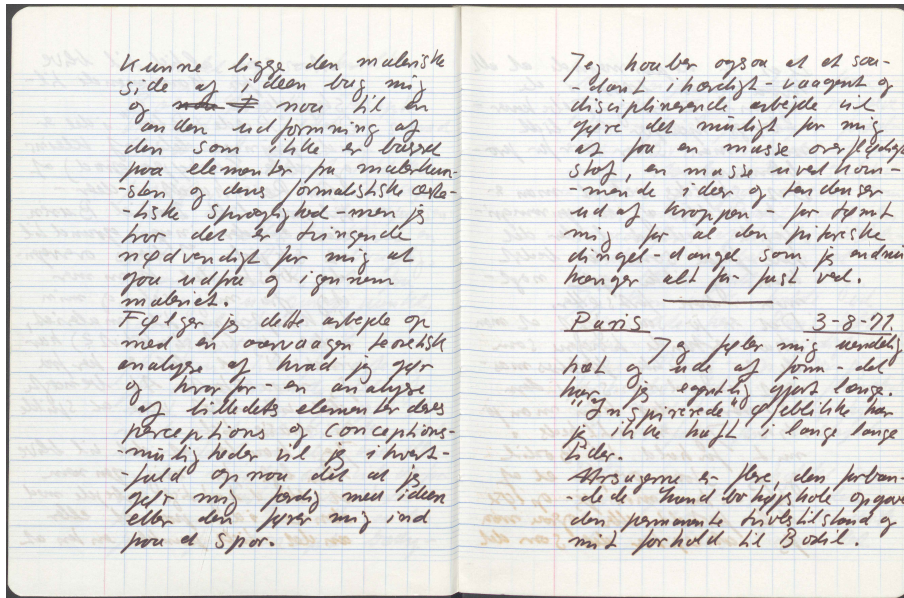 Kunne ligge den maleriske
side af ideen bag mig
og naa til en
anden udformning af
den som ikke er baseret
paa elementer fra malerkun-
-sten og dens formalistiske æste-
-tiske sproglighed - men jeg
tror det er tvingende
nødvendigt for mig at
gaa udfra og igennem
maleriet.
Følger jeg dette arbejde op
med en overvaagen teoretisk
analyse af hvad jeg gør
og hvorfor - en analyse
af billedets elementer deres
perceptions og conceptions-
-muligheder vil jeg i hvert-
-fald opnaa det at jeg
gør mig færdig med ideen
eller den fører mig ind
paa et spor.
Jeg haaber ogsaa at et saa-
-dant ihærdigt-vaagent og
disciplinerende arbejde vil
gøre det muligt for mig
at faa en masse overflødigt
stof, en masse uvedkom-
-mende ideer og tendenser
ud af kroppen - for tømt
mig for al den pikreske
dingel-dangel som jeg endnu
hænger alt for fast ved.
Paris 3-8-77.
Jeg føler mig uendelig
træt og ude af form - det
har jeg egentlig gjort længe.
"Inspirerede" øjeblikke har
jeg ikke haft i lange lange
tider.
Aarsagerne er flere, den forban-
-dede Kundbohøjskole opgave
den permanente tvivlstilstand og
mit forhold til Bodil.